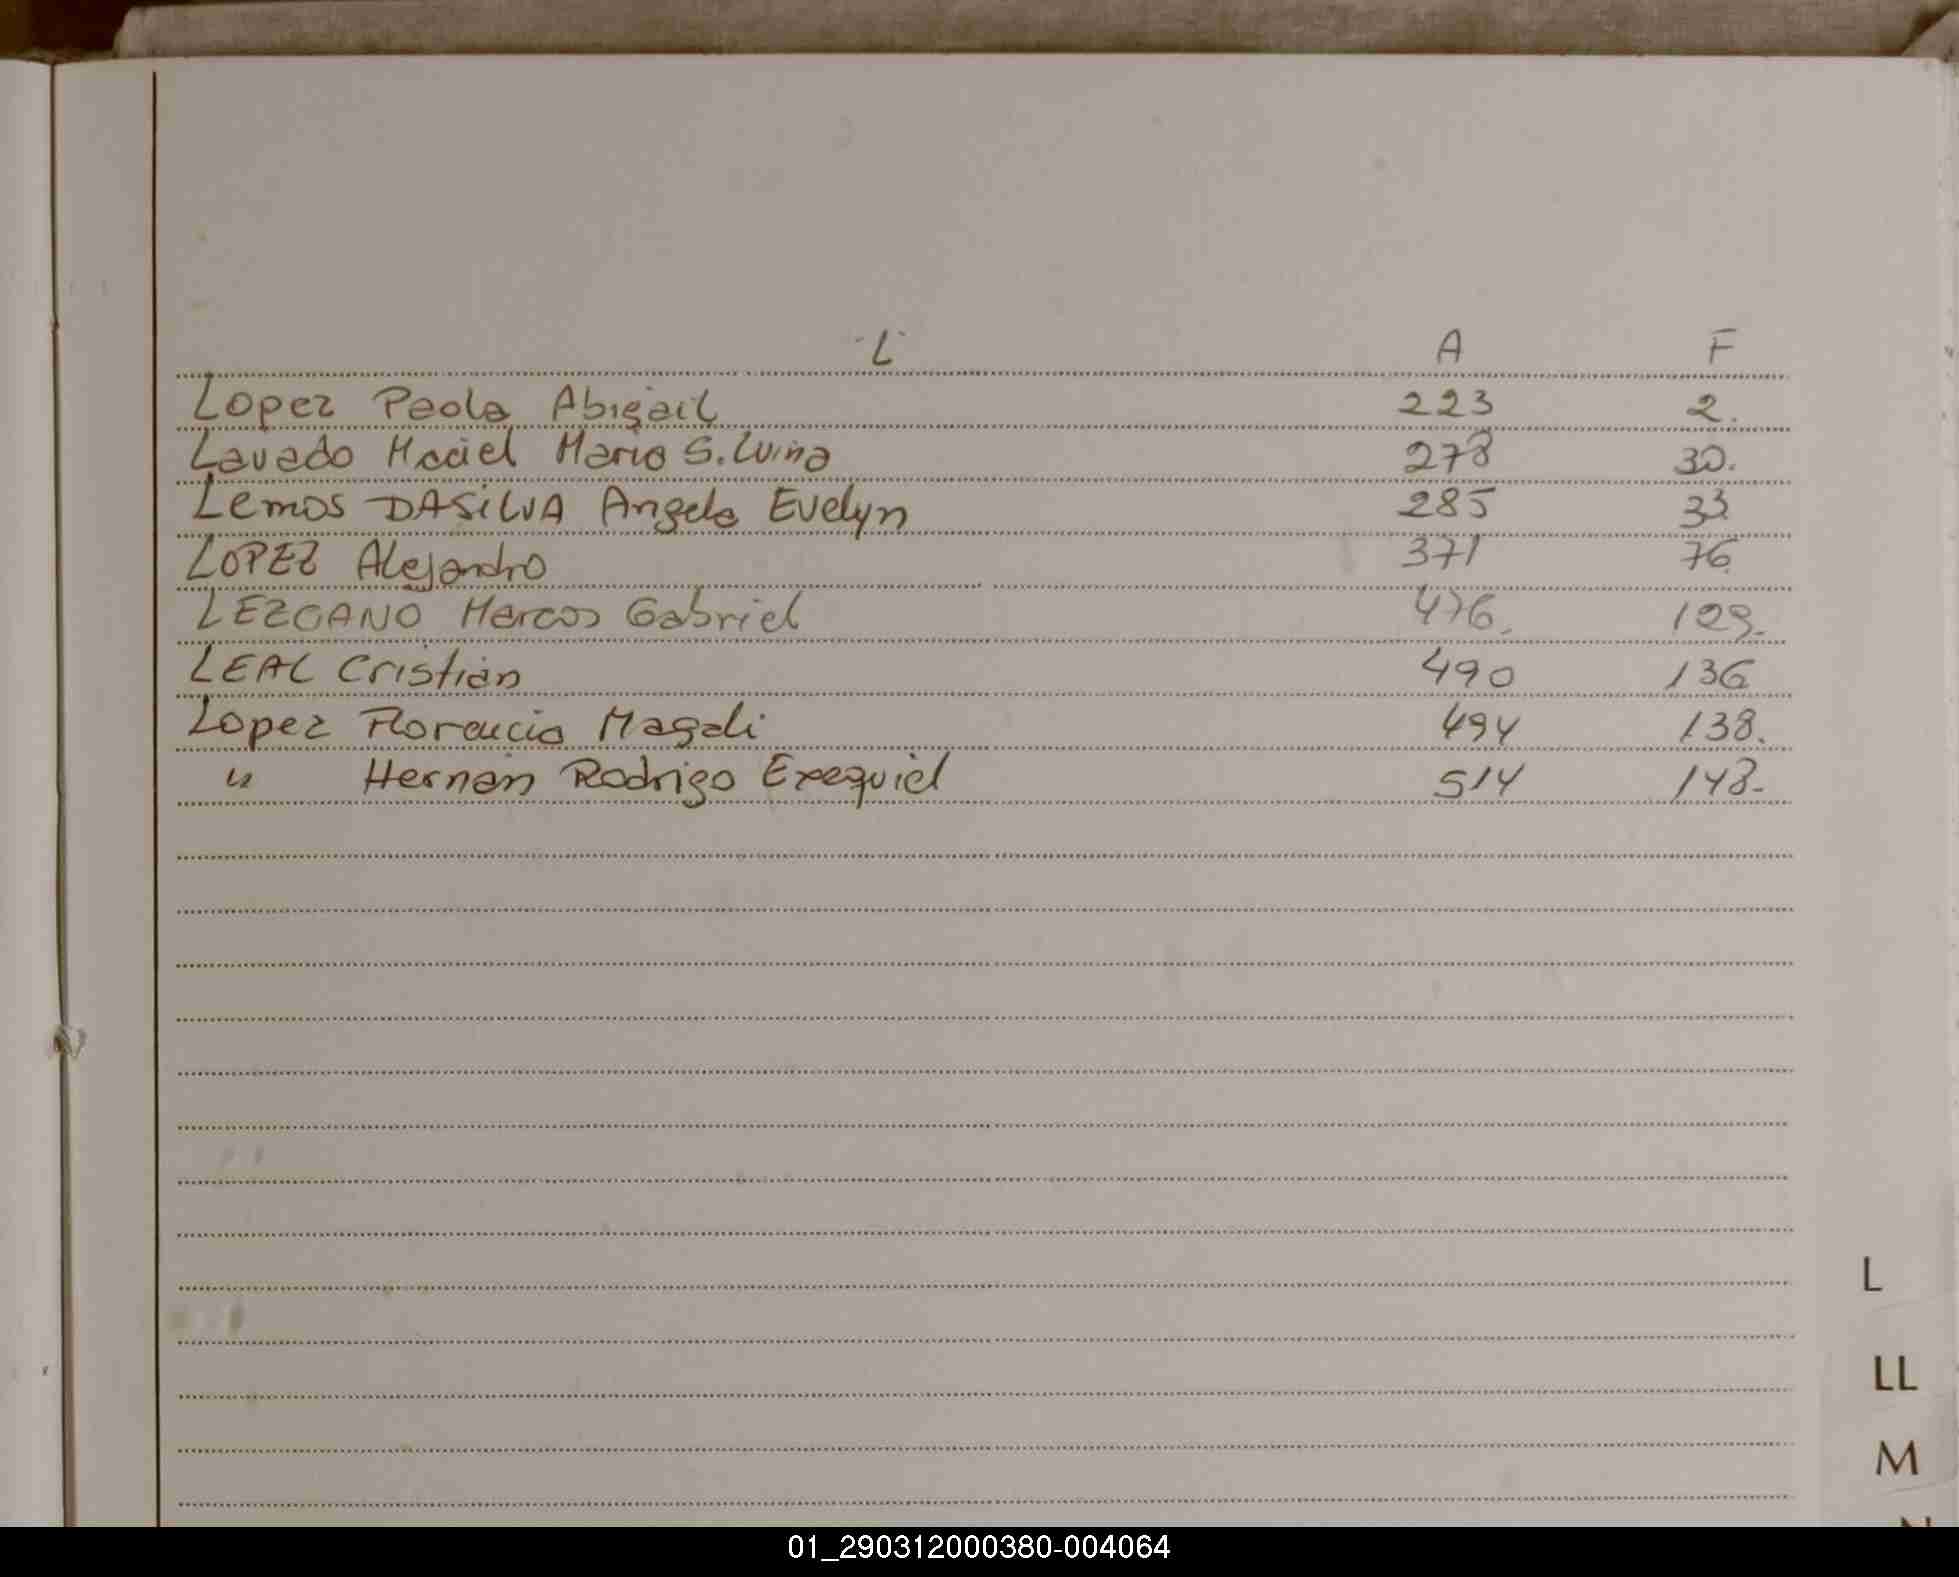 L A F
Lopez Paola Abigail 223 2.
Lavado Maciel Maria Silvina 278 30.
Lemos DASILVA Angela Evelyn 285 33
LOPEZ Alejandro 371 76
LEZCANO Marcos Gabriel 476. 129.
LEAL Cristian 490 136
Lopez Florencia Magali 494 138.
" Hernan Rodrigo Exequiel 514 148.
L
LL
M
N
01_290312000380-004064